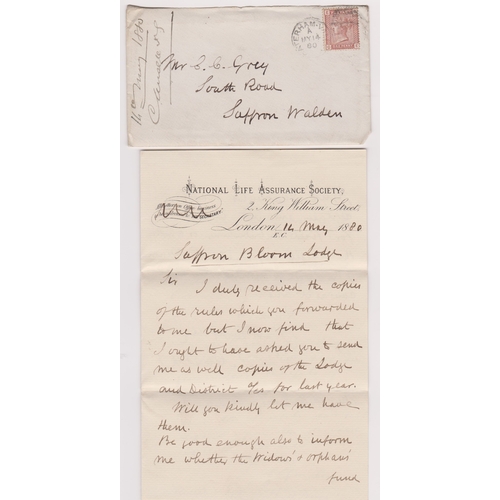 14th May 1880
ERHAM-
A
MY 14
80
Mr S. C. Grey
South Road
Saffron Walden
NATIONAL LIFE ASSURANCE SOCIETY,
2, King William Street,
London, 14 May 1880
E.C.
Saffron Bloom Lodge
Sir I duly received the copies
of the rules which you forwarded
to me but I now find that
I ought to have asked you to send
me as well copies of the Lodge
and District a/cs for last year.
Will you kindly let me have
them.
Be good enough also to inform
me whether the Widows' & Orphans'
fund